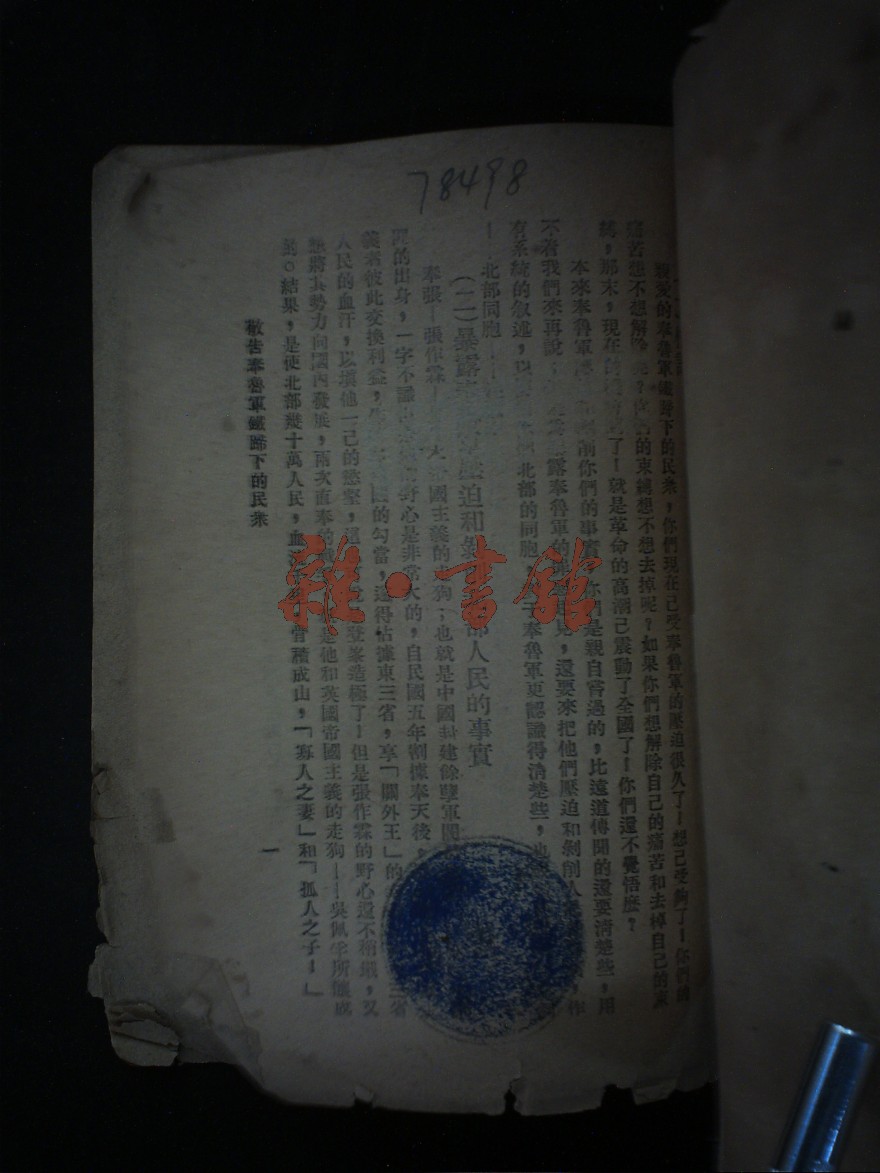 78498
親愛的奉魯軍鐵蹄下的民衆,你們現在已受奉魯軍的壓迫很久了!想已受夠了!你們的
痛苦想不想解除呢?的束縛想不想去掉呢?如果你們想解除自己的痛苦和去掉自己的束
縛,那末,現在了!就是革命的高潮已震動了全國了!你們還不覺悟麽?
本來奉魯軍削你們的事實你們是親自嘗過的,比遠道傳聞的還要清楚些,用
不着我們來再說;露奉魯軍的,還要來把他們壓迫和剝削人,作
有系統的叙述,以北部的同胞,于奉魯軍更認識得清楚些,也
——北部同胞——
(二)暴露壓迫和部人民的事實
奉張——張作霖——國主義的走狗;也就是中國封建餘孽軍閥
的出身,一字不識野心是非常大的,自民國五年割據奉天後,
義者彼此交換利益,的勾當,遂得佔據東三省,享「關外王」的省
人民的血汗,以填他一己的慾壑,登峯造極了!但是張作霖的野心還不稍塌,又
想將其勢力向國內發展,兩次直奉的是他和英國帝國主義的走狗——吳佩孚所釀成
的。結果,是使北部幾十萬人民,血骨積成山,「寡人之妻」和「孤人之子!」
敬告奉魯軍鐵蹄下的民衆
一
雜·書館